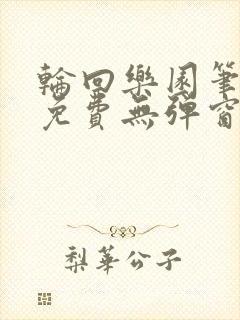 輪回樂園筆
免費無彈窗
梨華公子